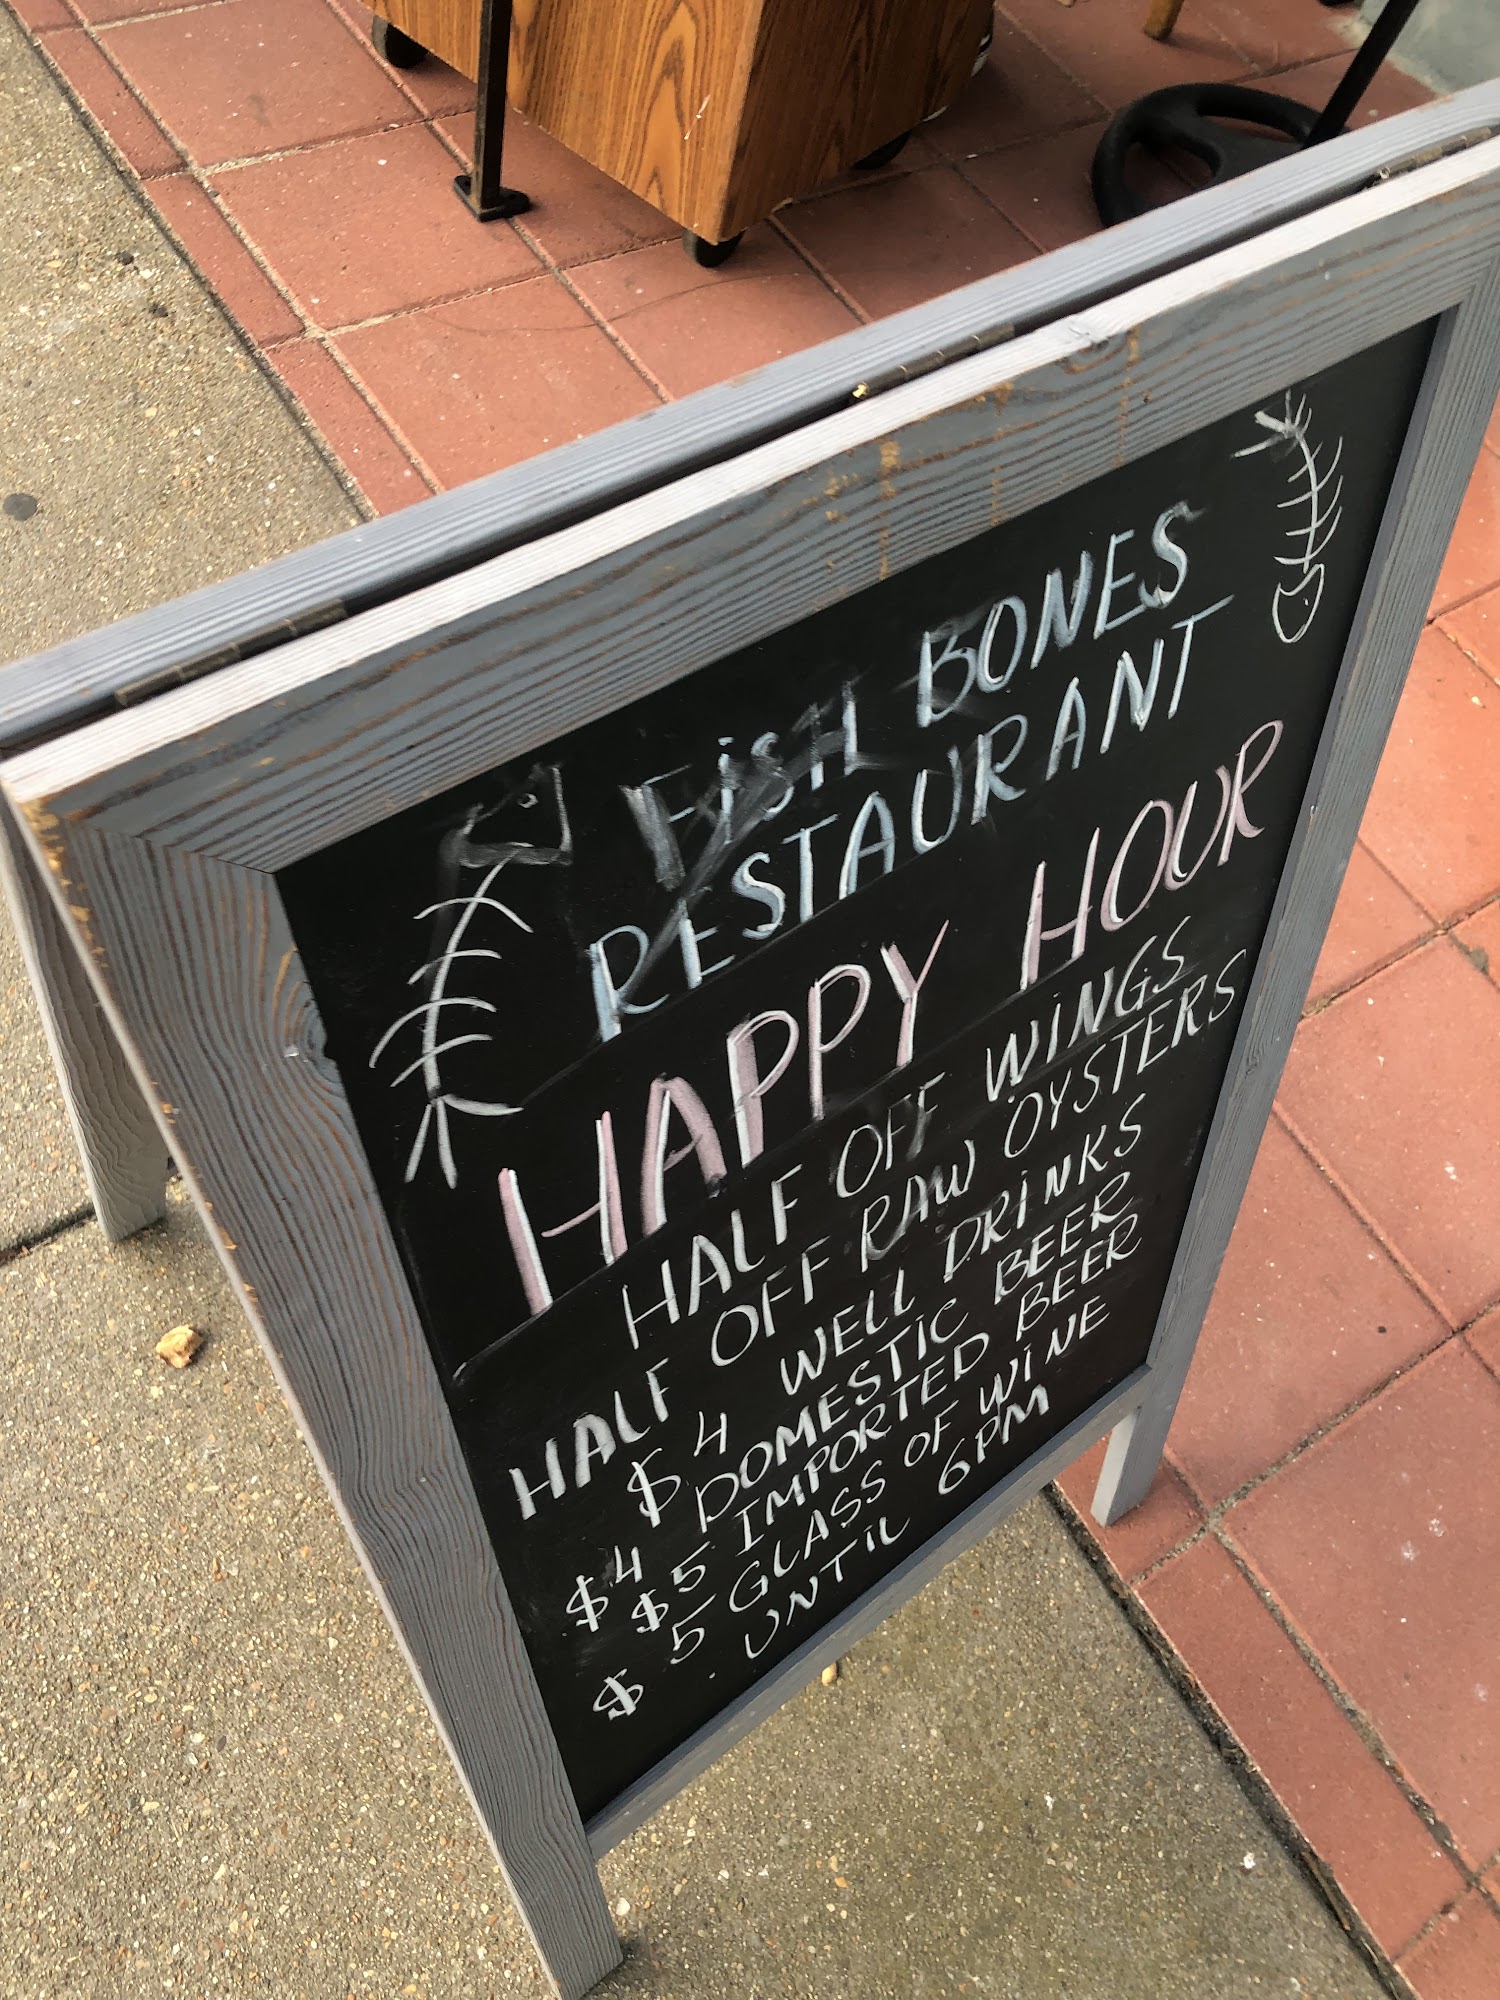 FISH BONES
RESTAURANT
HAPPY HOUR
HALF OFF WINGS
HALF OFF RAW OYSTERS
$4 WELL DRINKS
$4 DOMESTIC BEER
$5 IMPORTED BEER
$5 GLASS OF WINE
. UNTIL 6PM